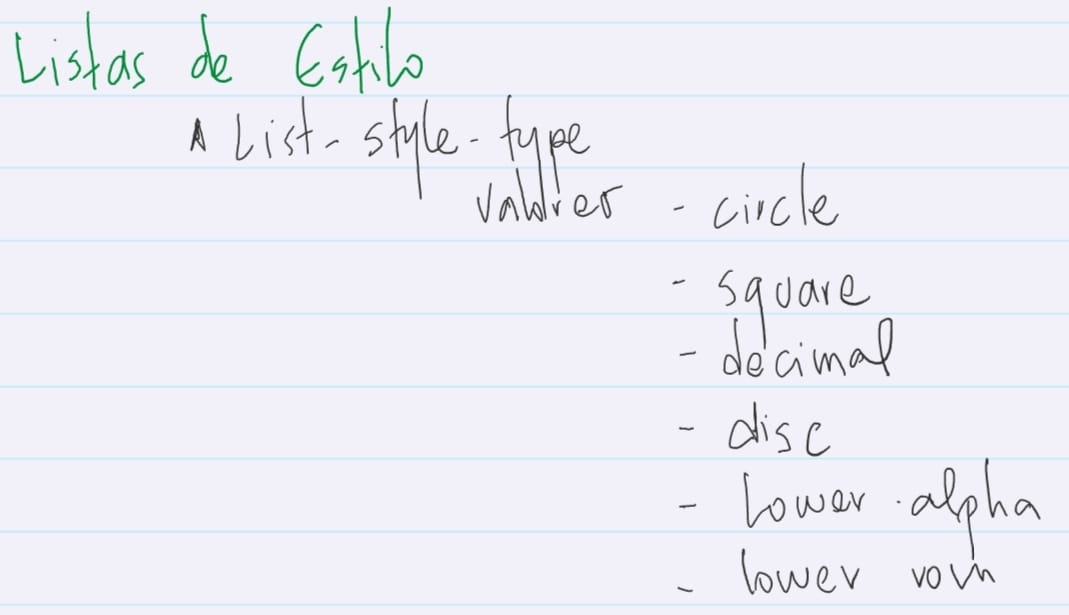 Listas de Estilo
A List-style-type
valores - circle
- square
- decimal
- disc
- Lower-alpha
- lower rom